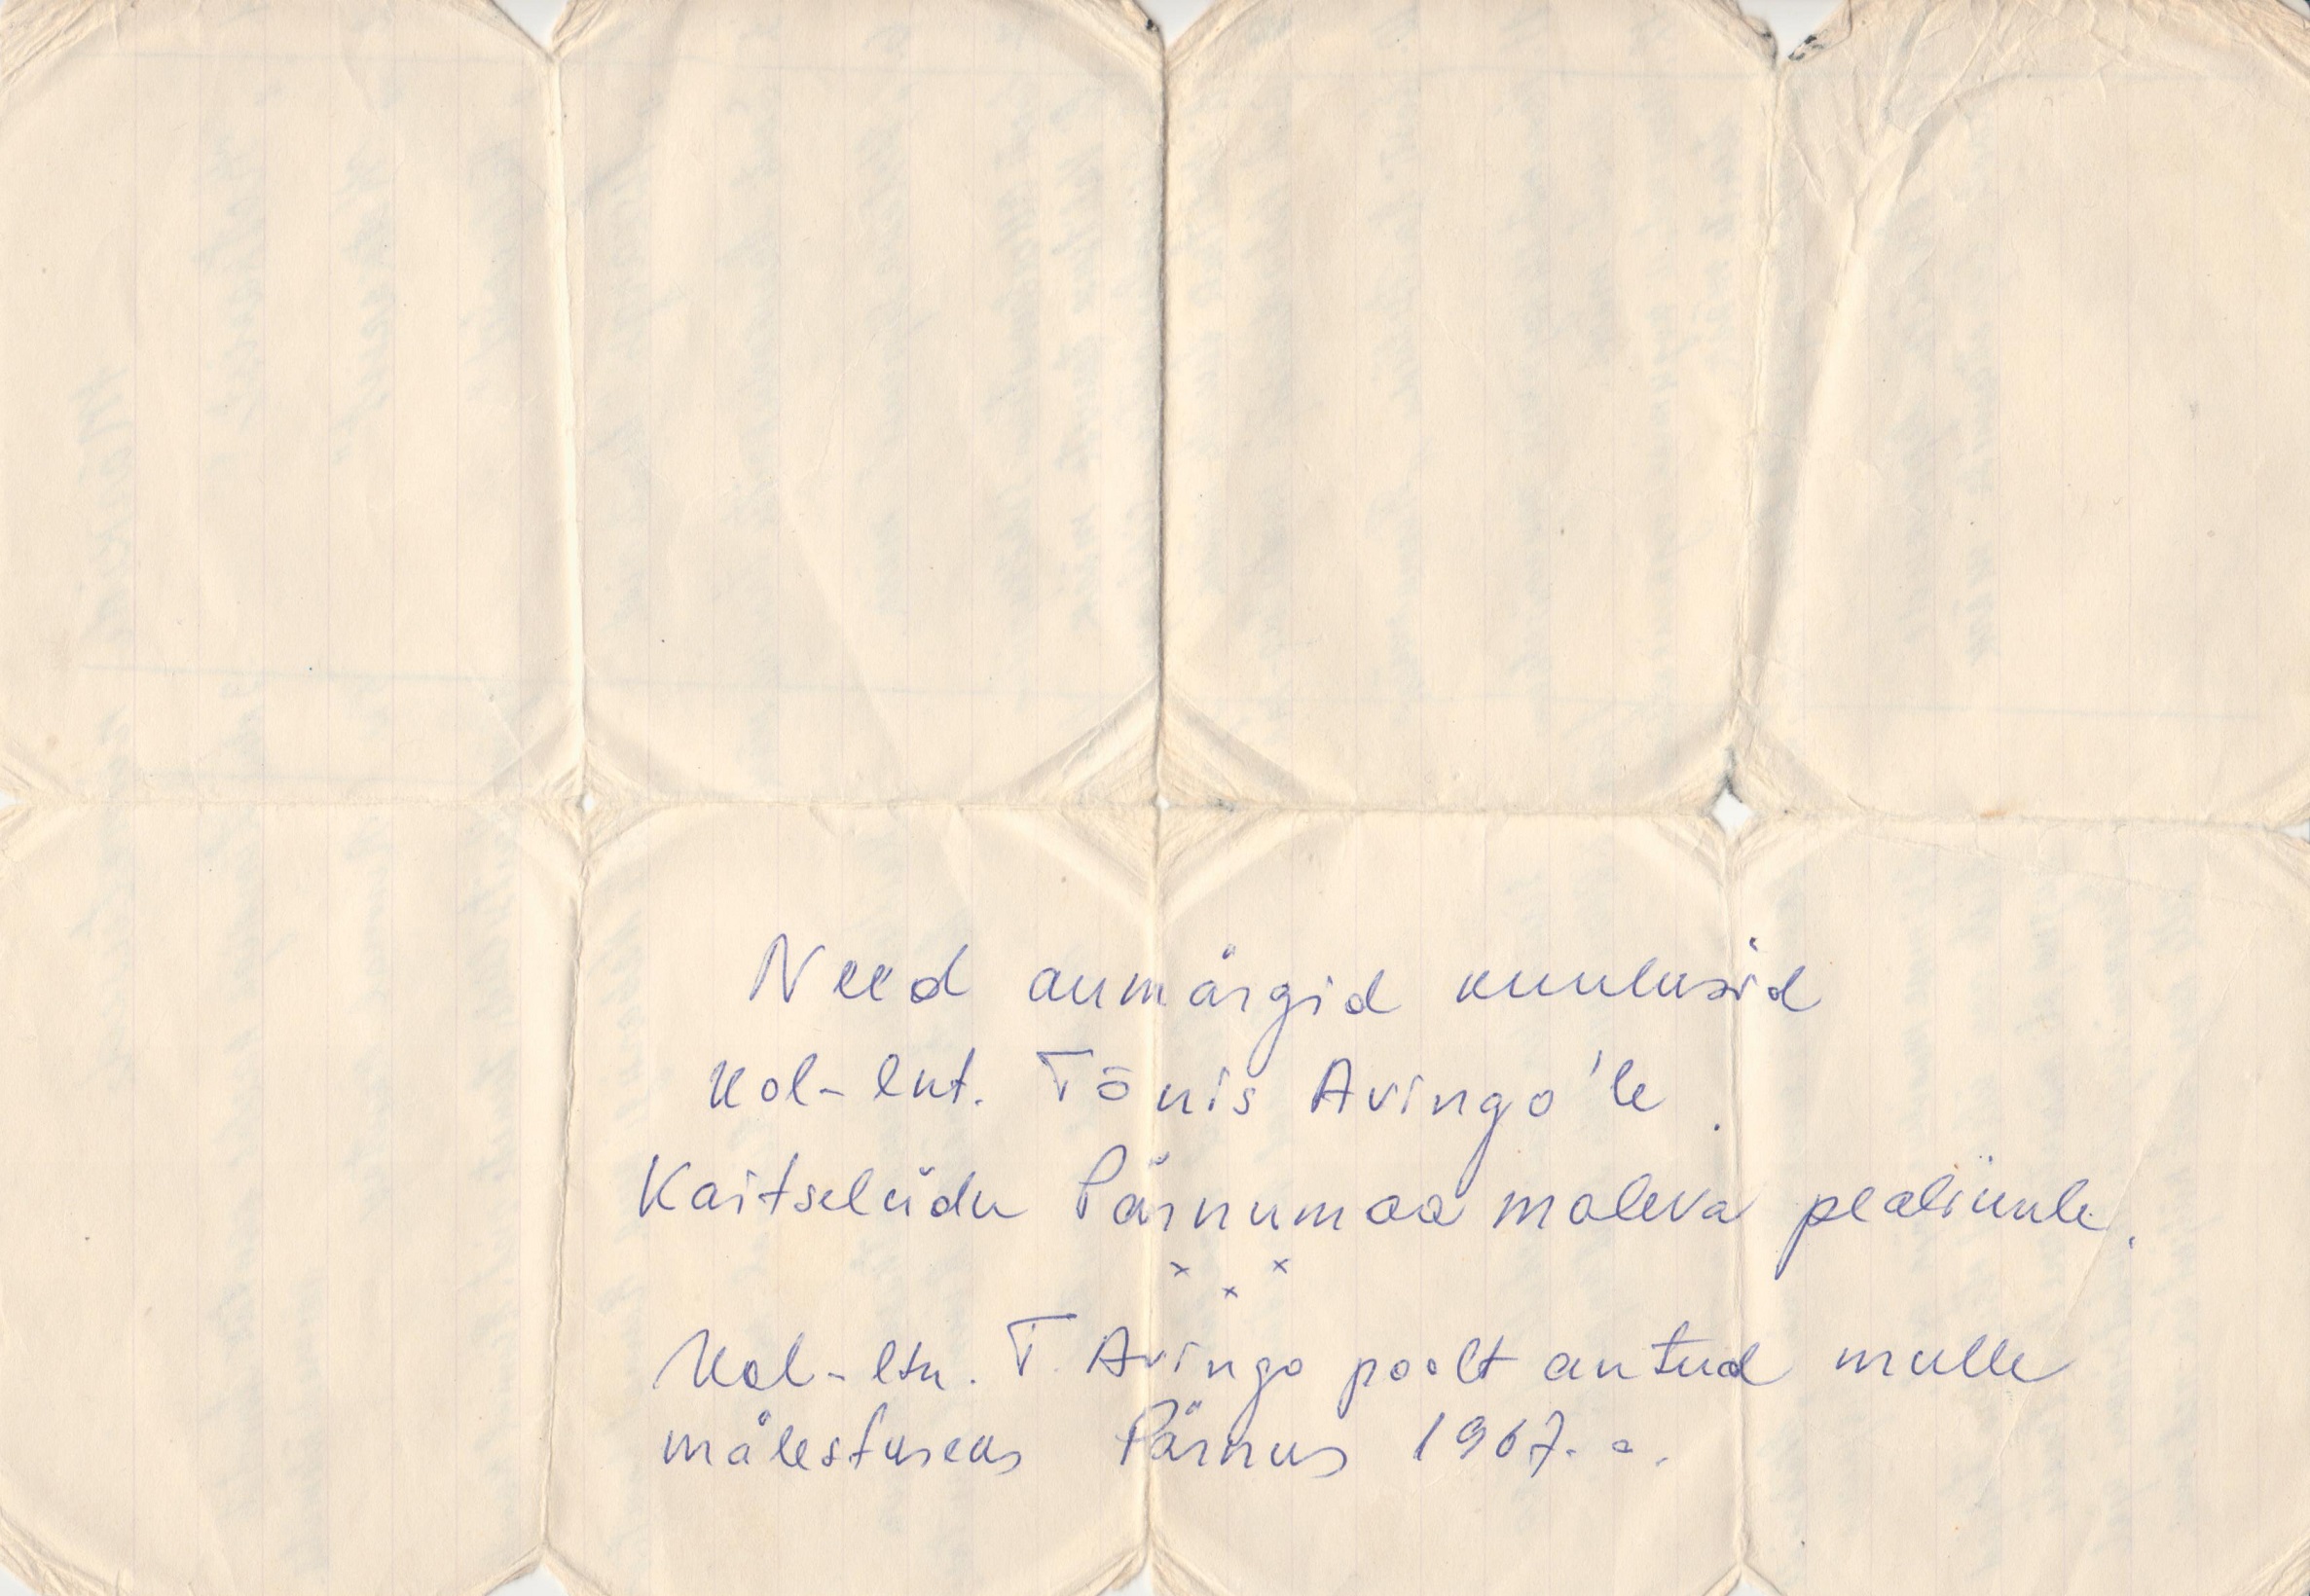 Need aumärgid kuulusid
Kol-lnt. Tõnis Avingo'le.
Kaitseliidu Pärnumaa maleva pealikule.
x x x
Kol-ltn. T. Avingo poolt antud mulle
mälestuseks Pärnus 1967. a.